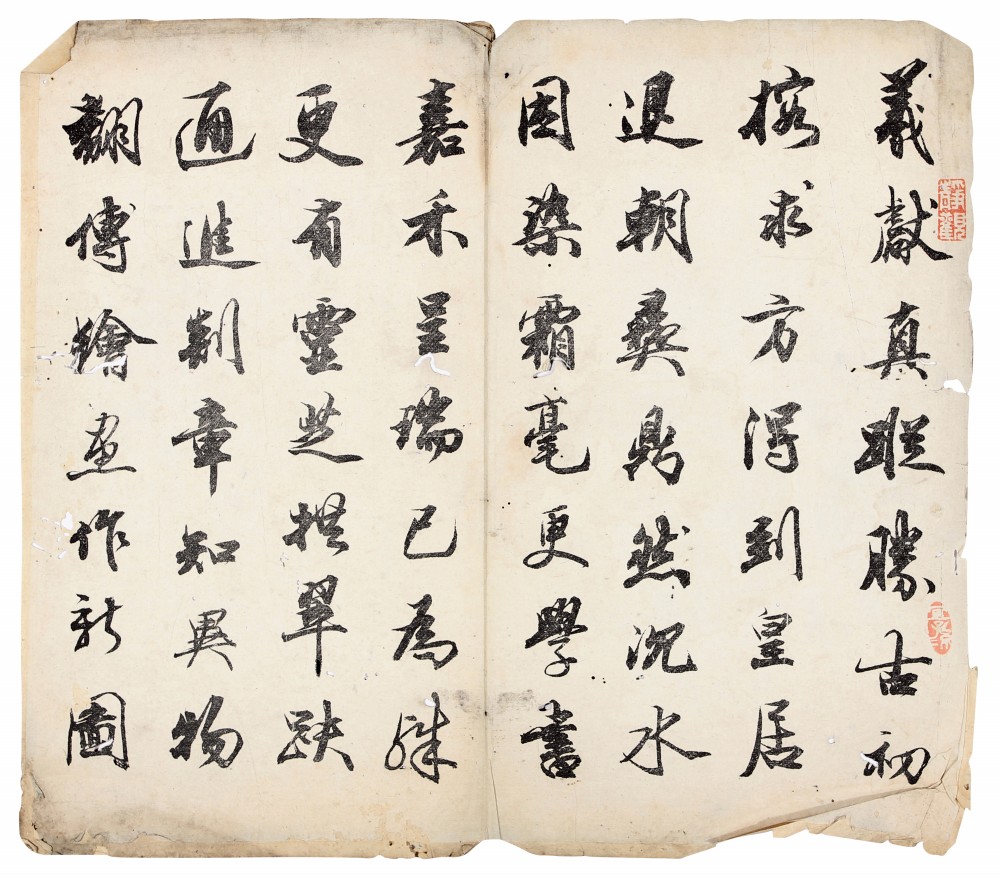 羲獻真蹤勝古初
搜求方得到皇居
退朝彝鼎然沉水
因染霜毫更學書
嘉禾呈瑞已為殊
更有靈芝拱翠趺
通進剡章知異物
翻傳繪畫作新圖